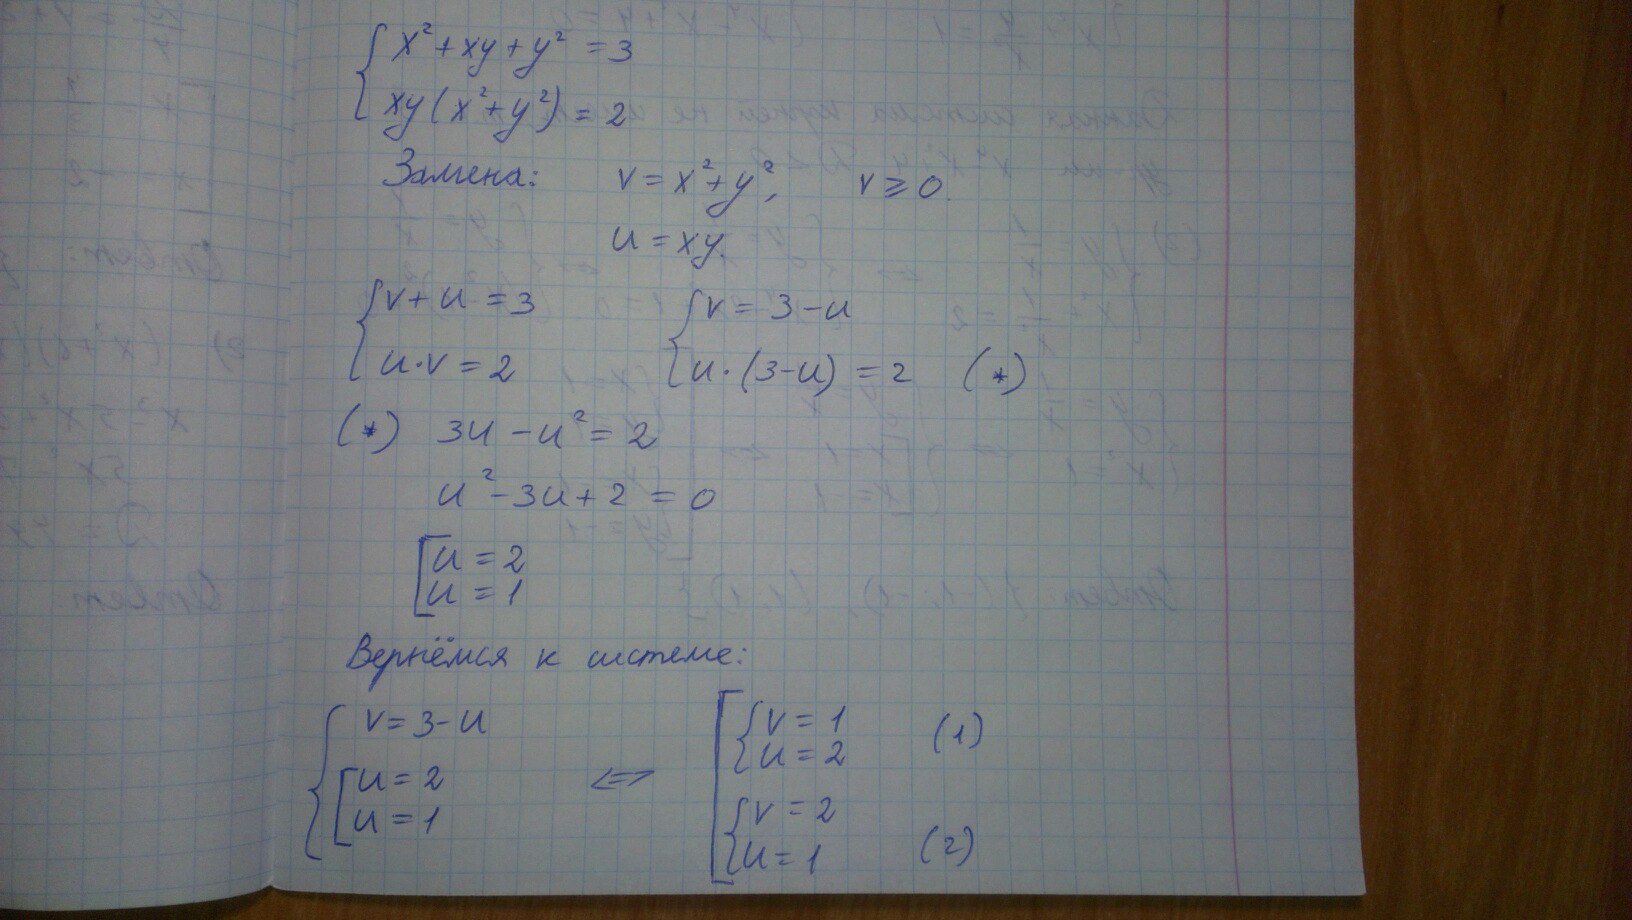 x² + xy + y² = 3
xy(x² + y²) = 2
Замена: v = x² + y², v ⩾ 0.
u = xy.
v + u = 3 v = 3 - u
u · v = 2 u · (3 - u) = 2 (*)
(*) 3u - u² = 2
u² - 3u + 2 = 0
u = 2
u = 1
Вернёмся к системе:
v = 3 - u
u = 2
u = 1
<=>
v = 1
u = 2 (1)
v = 2
u = 1 (2)